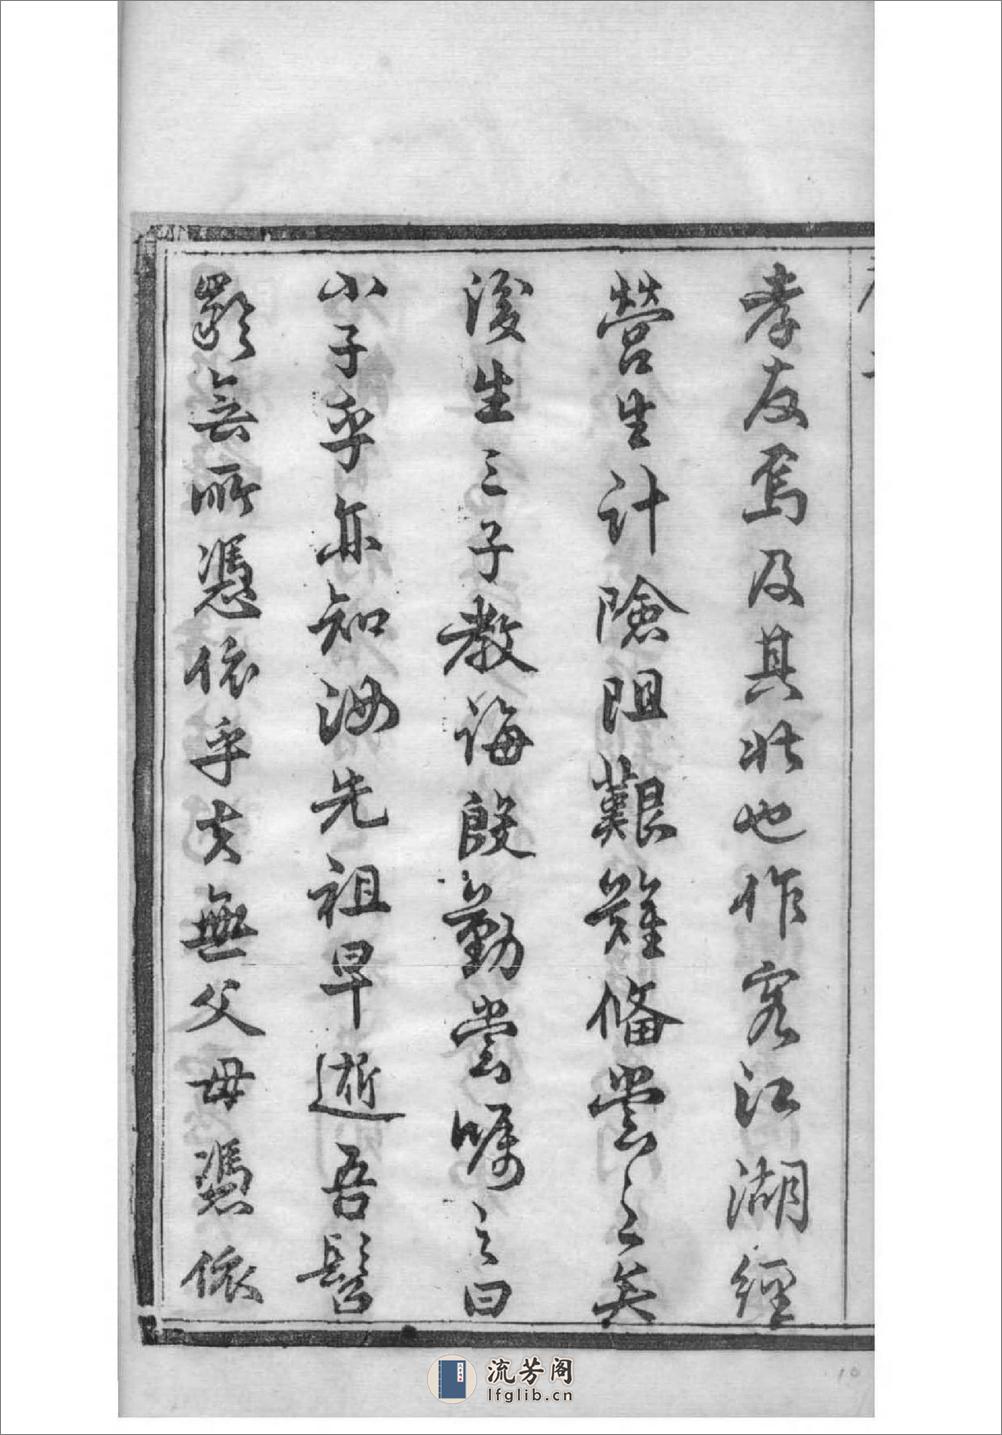 孝友焉及其壯也作客江湖經
營生計險阻艱難備嘗之矣
後生三子教誨殷勤嘗囑之曰
小子乎亦知汝先祖早逝吾髫
齡無所憑依乎夫無父母憑依
流芳阁
lfglib.cn
10